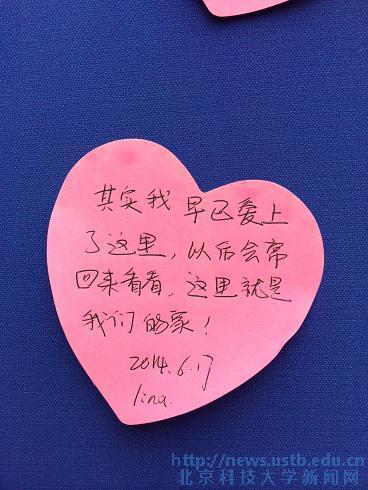 其实我早已爱上
了这里，以后会常
回来看看，这里就是
我们的家！
2014.6.17
lina.
http://news.ustb.edu.cn
北京科技大学新闻网